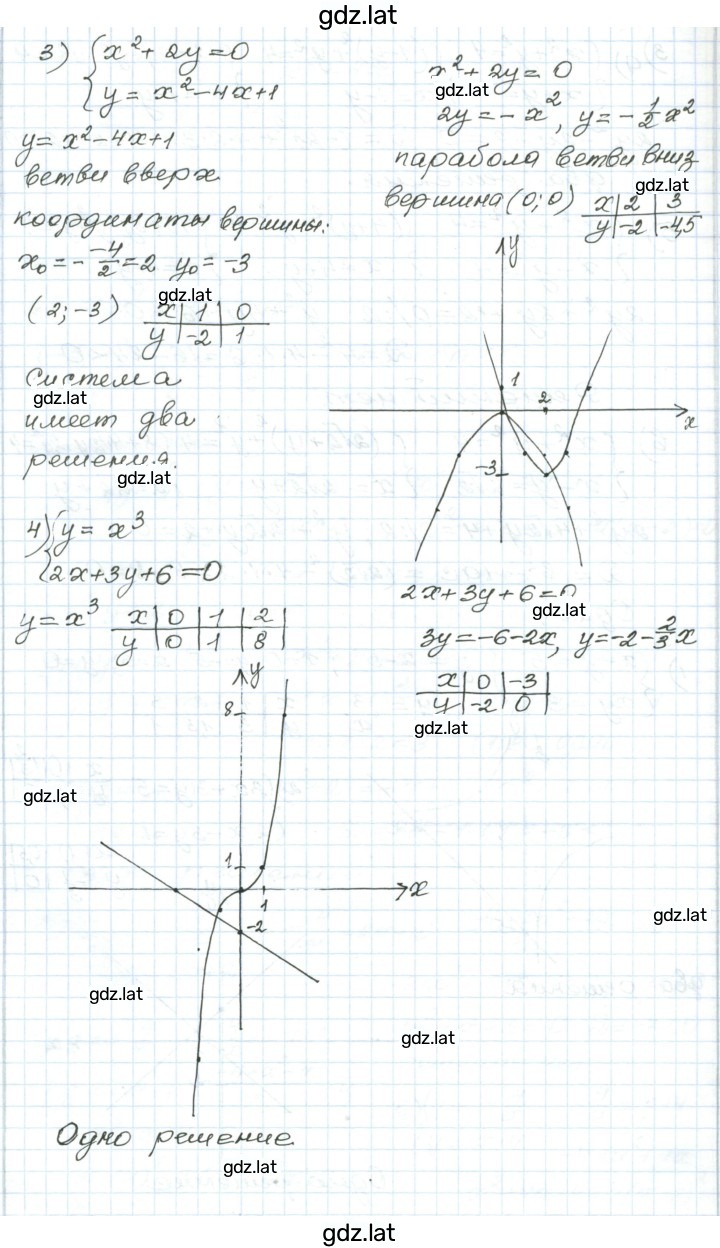 gdz.lat
3) { x² + 2y = 0
y = x² - 4x + 1
y = x² - 4x + 1
ветви вверх
координаты вершины:
x₀ = - -4/2 = 2 y₀ = -3
gdz.lat
(2; -3) x | 1 | 0
y | -2 | 1
Система
gdz.lat
имеет два
решения.
gdz.lat
x² + 2y = 0
gdz.lat
2y = - x², y = - 1/2 x²
парабола ветви вниз
gdz.lat
вершина (0; 0) x | 2 | 3
y | -2 | -4,5
y
1
2
x
-3
4) { y = x³
2x + 3y + 6 = 0
y = x³ x | 0 | 1 | 2 |
y | 0 | 1 | 8 |
2x + 3y + 6 = 0
gdz.lat
3y = -6 - 2x, y = -2 - 2/3 x
x | 0 | -3 |
y | -2 | 0 |
gdz.lat
y
8
gdz.lat
1
x
1
-2
gdz.lat
gdz.lat
gdz.lat
Одно решение
gdz.lat
gdz.lat